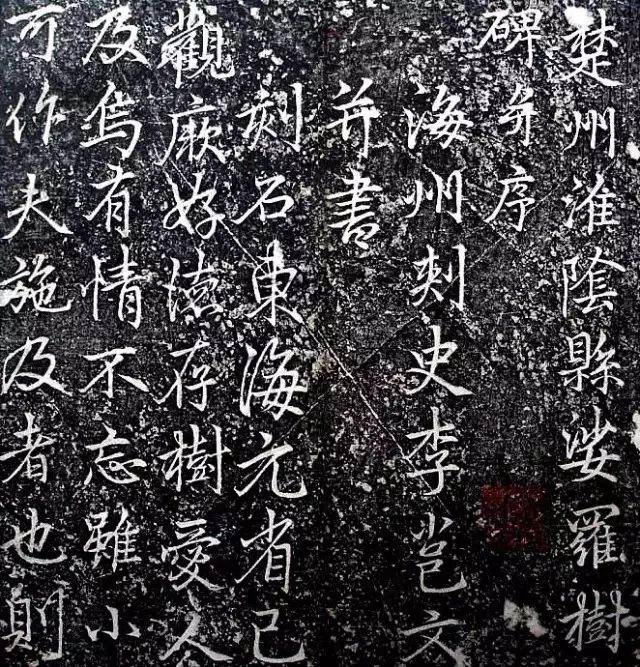 楚州淮陰縣娑羅樹
碑并序
海州刺史李邕文
并書
刻石東海元省已
觀厥好德存樹愛人
及烏有情不忘雖小
可作夫施及者也則